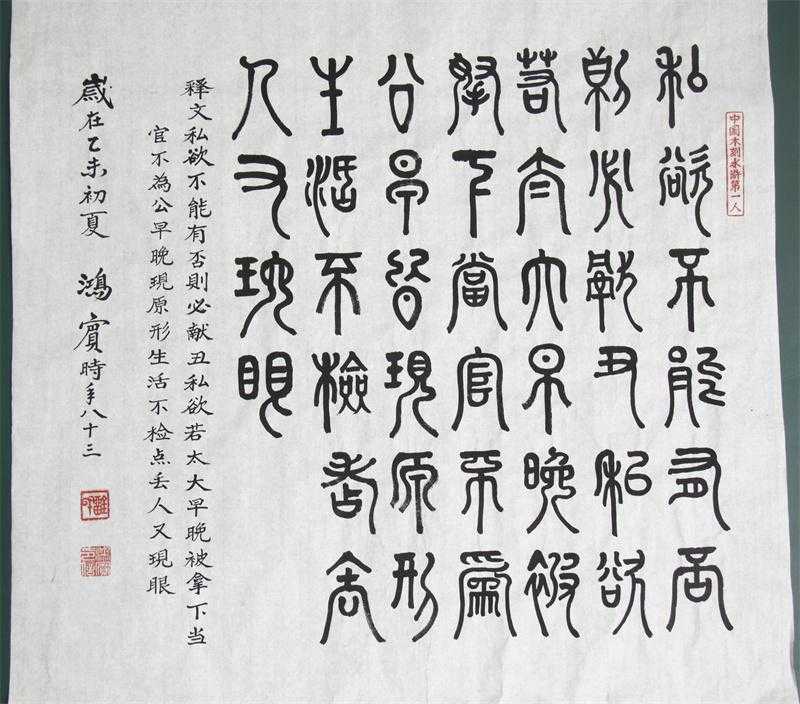 中国木刻水浒第一人
私欲不能有否
則必献丑私欲
若太大早晚被
拿下當官不爲
公早皆現原形
生活不檢點丢
人又現眼
释文私欲不能有否则必献丑私欲若太大早晚被拿下当
官不為公早晚現原形生活不检点丢人又現眼
歲在乙未初夏 鴻賓時年八十三